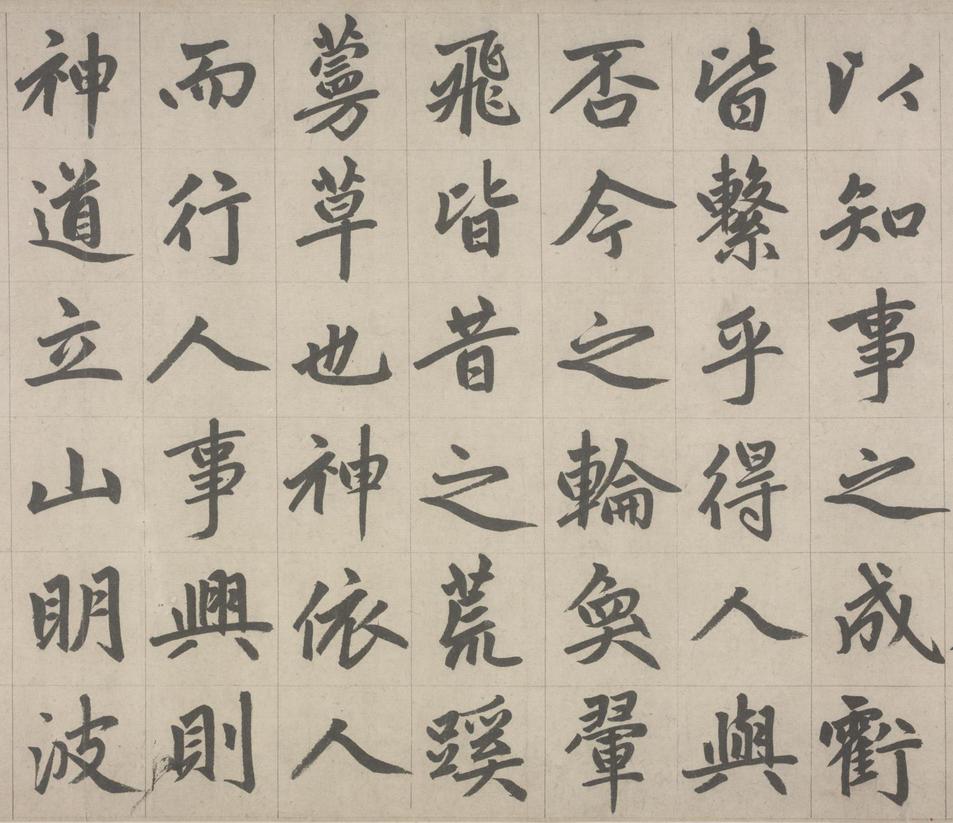 以知事之成虧
皆繫乎得人與
否今之輪奐翬
飛皆昔之荒蹊
蔓草也神依人
而行人事興則
神道立山眀波